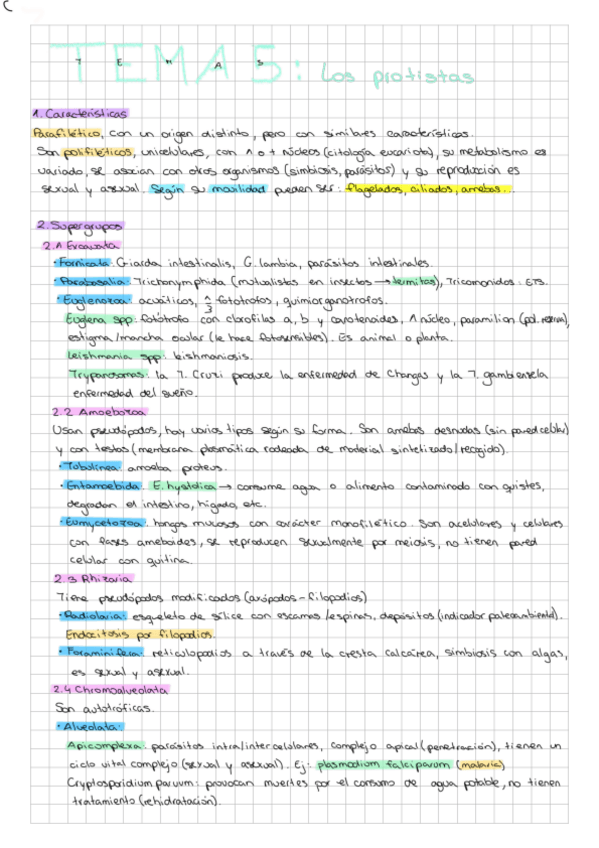 TEMA 5: Los protistas
1. Características
Parafilético, con un origen distinto, pero con similares características.
Son polifiléticos, unicelulares, con 1 o + núcleos (citología eucariota), su metabolismo es
variado, se asocian con otros organismos (simbiosis, parásitos) y su reproducción es
sexual y asexual. Según su movilidad pueden ser: flagelados, ciliados, amebas...
2. Supergrupos
2.1 Excavata
· Fornicata: Giarda intestinalis, G. lambia, parásitos intestinales.
· Parabasalia: Trichonymphida (mutualistas en insectos → termitas), Tricomonidos: ETS.
· Euglenozoa: acuáticos, 1/3 fotótrofos, quimiorganotrofos.
Euglena spp: fotótrofo con clorofilas a, b y carotenoides, 1 núcleo, paramilion (pol. reserva),
estigma/mancha ocular (le hace fotosensibles). Es animal o planta.
Leishmania spp: leishmaniosis.
Trypanosomas: la T. Cruzi produce la enfermedad de Changas y la T. gambiensela
enfermedad del sueño.
2.2 Amoebozoa
Usan pseudópodos, hay varios tipos según su forma. Son amebas desnudas (sin pared celular)
y con testas (membrana plasmática rodeada de material sintetizado/recogido).
· Tobulinea: amoeba proteus.
· Entamoebida: E. hystolica → consume agua o alimento contaminado con quistes,
degradan el intestino, hígado, etc.
· Eumycetozoa: hongos mucosos con carácter monofilético. Son acelulares y celulares
con fases ameboides, se reproducen sexualmente por meiosis, no tienen pared
celular con quitina.
2.3 Rhizaria
Tiene pseudópodos modificados (axópodos - filopodios)
· Radiolaria: esqueleto de sílice con escamas/espinas, depósitos (indicador paleoambiental).
Endocitosis por filopodios.
· Foraminífera: reticulopodios a través de la cresta calcárea, simbiosis con algas,
es sexual y asexual.
2.4 Chromoalveolata
Son autotróficas.
· Alveolata:
Apicomplexa: parásitos intra/intercelulares, complejo apical (penetración), tienen un
ciclo vital complejo (sexual y asexual). Ej: plasmodium falciparum (malaria)
Cryptosporidium parvum: provocan muertes por el consumo de agua potable, no tienen
tratamiento (rehidratación).